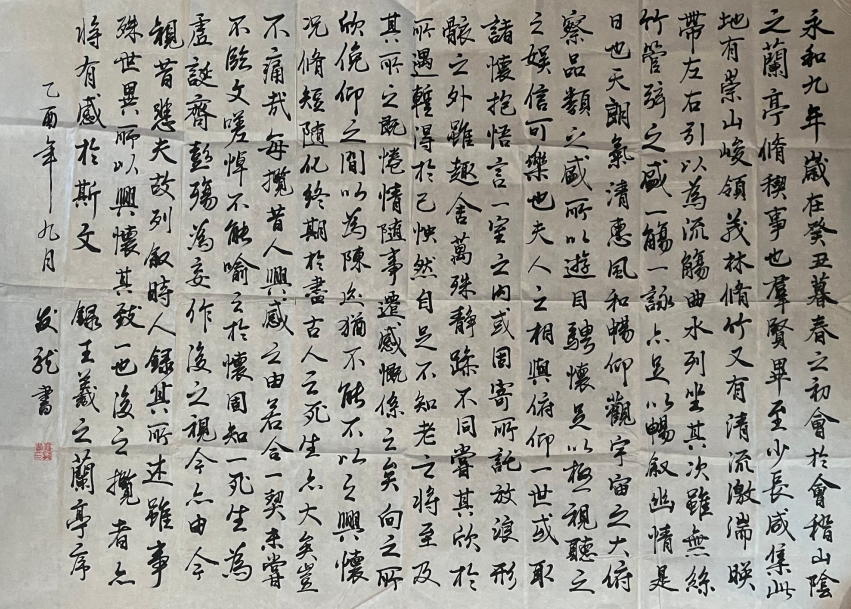 永和九年歲在癸丑暮春之初會於會稽山陰
之蘭亭脩稧事也羣賢畢至少長咸集此
地有崇山峻領茂林脩竹又有清流激湍暎
帶左右引以為流觴曲水列坐其次雖無絲
竹管弦之盛一觴一詠亦足以暢敘幽情是
日也天朗氣清惠風和暢仰觀宇宙之大俯
察品類之盛所以遊目騁懷足以極視聽之
娛信可樂也夫人之相與俯仰一世或取
諸懷抱悟言一室之內或因寄所託放浪形
骸之外雖趣舍萬殊靜躁不同當其欣於
所遇暫得於己怏然自足不知老之將至及
其所之既惓情隨事遷感慨係之矣向之所
欣俛仰之間以為陳迹猶不能不以之興懷
況脩短隨化終期於盡古人云死生亦大矣豈
不痛哉每攬昔人興感之由若合一契未嘗
不臨文嗟悼不能喻之於懷固知一死生為
虛誕齊彭殤為妄作後之視今亦由今
視昔悲夫故列敘時人錄其所述雖事
殊世異所以興懷其致一也後之攬者亦
將有感於斯文 錄王羲之蘭亭序
乙酉年 九月 龍書